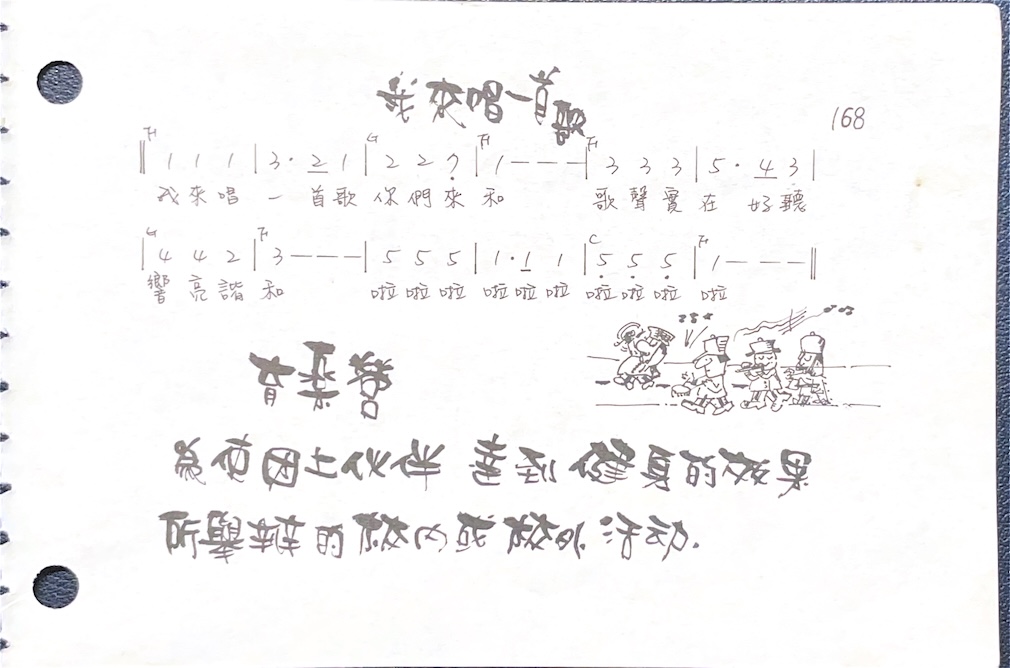 我來唱一首歌
168
F G F F
‖ 1 1 1 | 3 · 2 1 | 2 2 7 | 1 — — — | 3 3 3 | 5 · 4 3 |
我來唱 一 首歌 你們來 和 歌聲實 在 好聽
G F C F
| 4 4 2 | 3 — — — | 5 5 5 | 1 · 1 1 | 5 5 5 | 1 — — — ‖
響亮諧 和 啦啦啦 啦啦啦 啦啦啦 啦
育樂營
為使團土伙伴 達到 健身的效果
所舉辦的校內或校外活动.